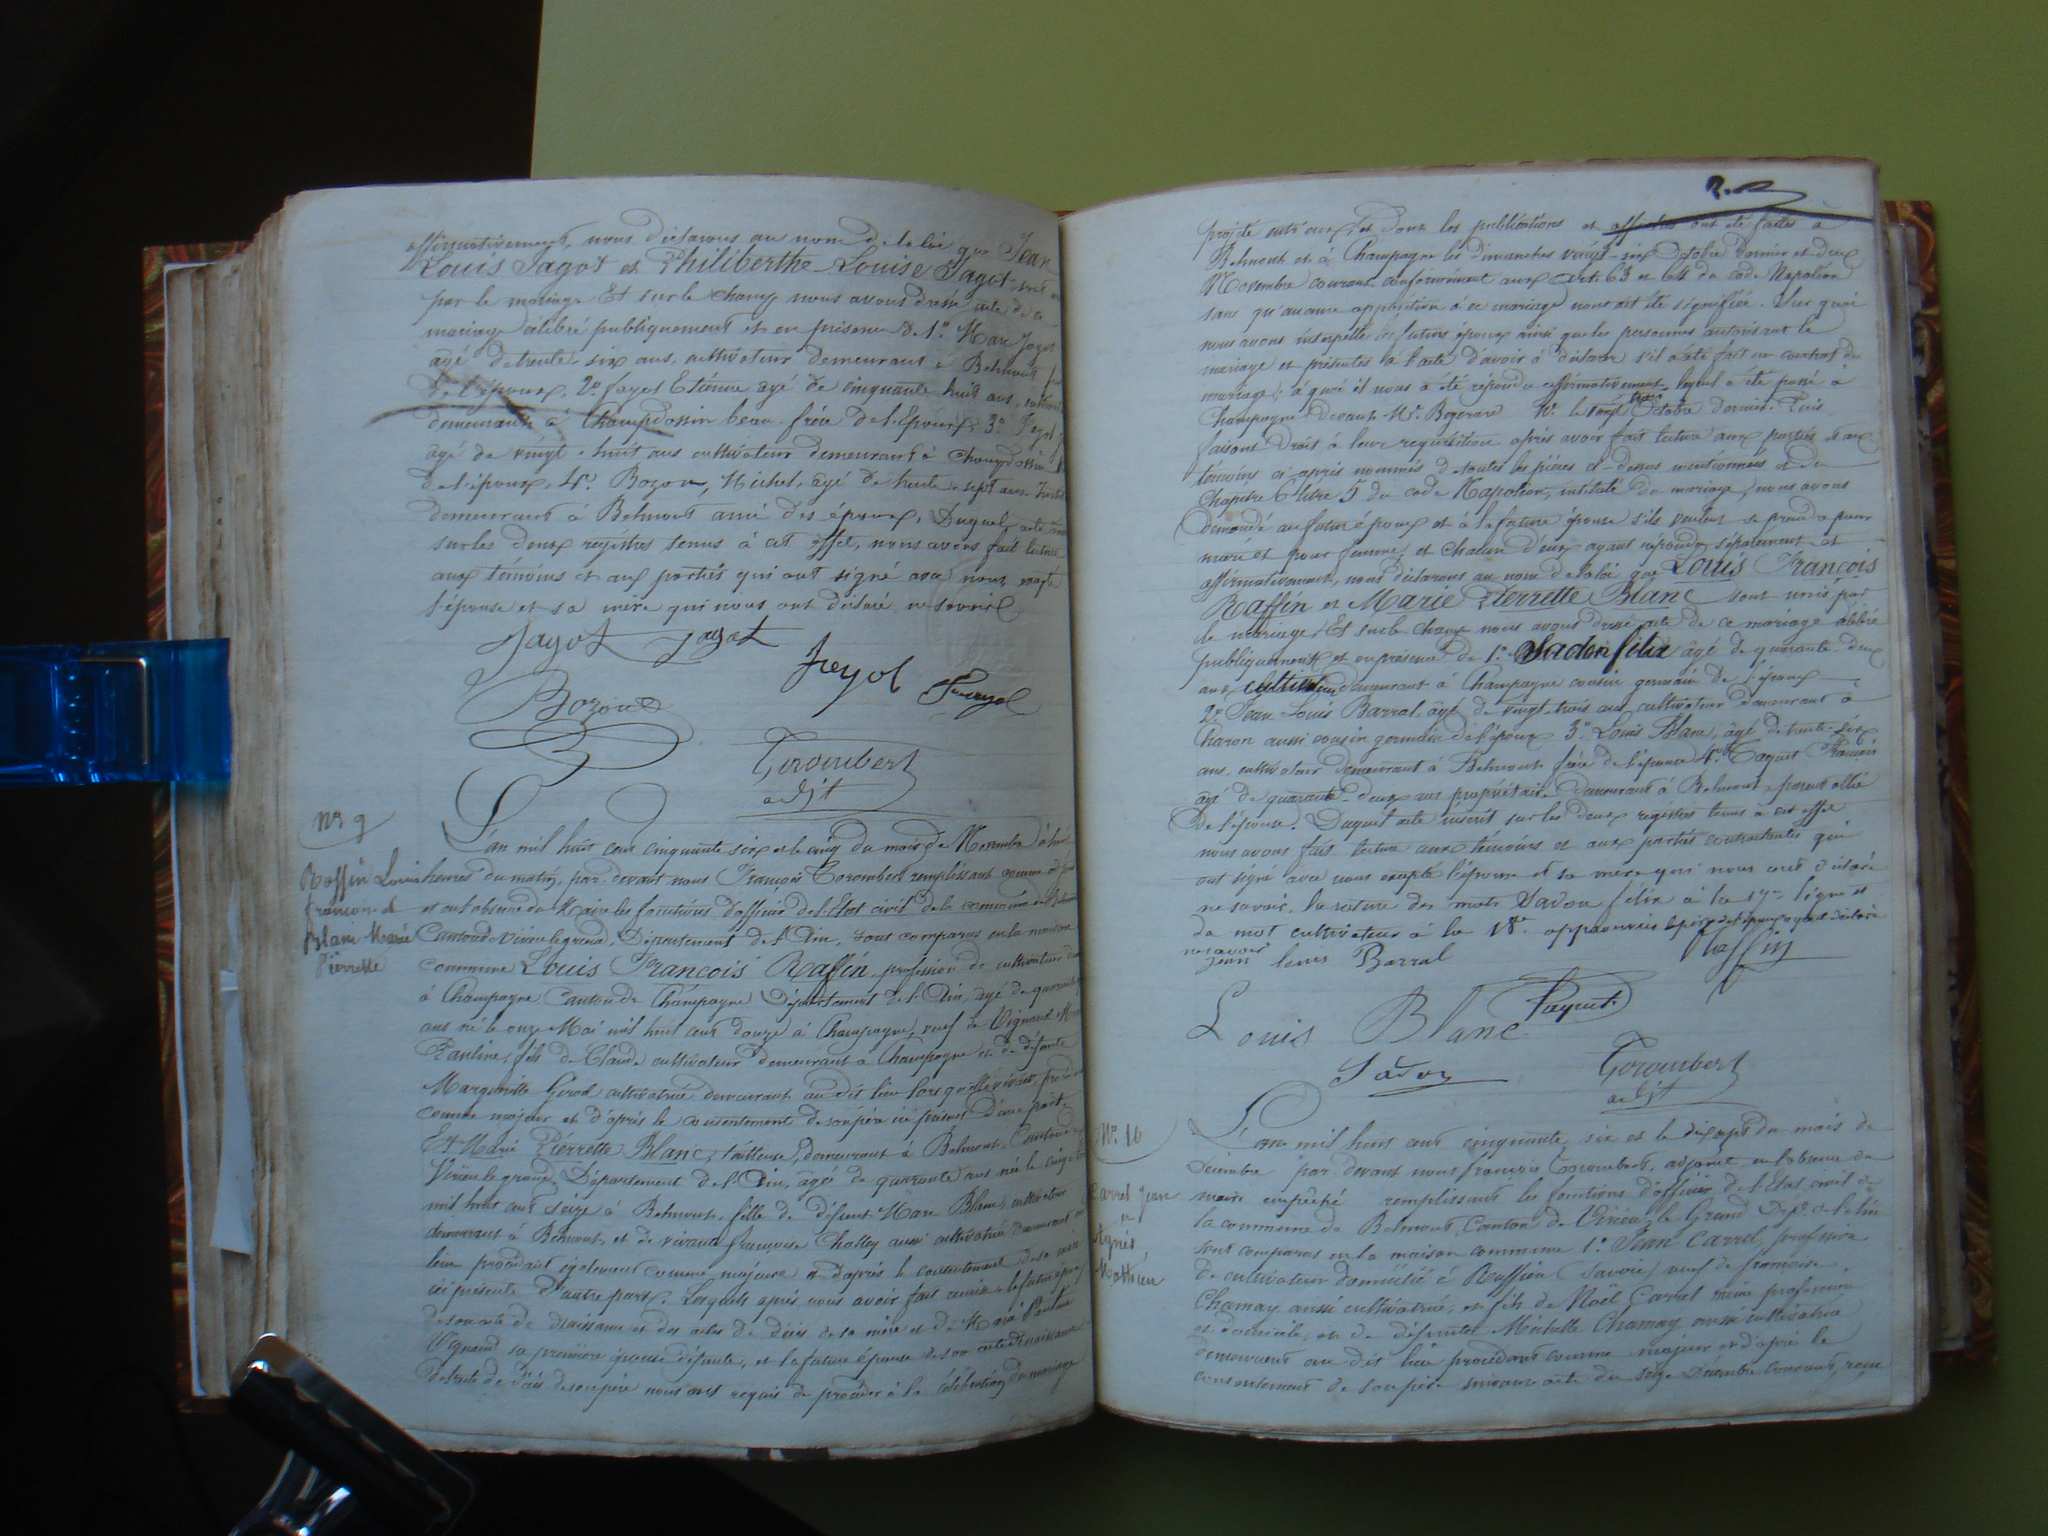 affirmativement, nous déclarons au nom de la loi que Jean
Louis Jagot et Philiberthe Louise Jagot sont
par le mariage Et sur le champ nous avons dressé acte de ce
mariage célébré publiquement et en présence de 1° Marc Jagot
agé de trente six ans, cultivateur demeurant à Belmont
de l'époux, 2° Étienne agé de cinquante huit ans,
demeurant à Champdossin beau frère de l'Epoux, 3°
agé de vingt-huit ans cultivateur demeurant à Champdossin
de l'époux, 4° Bozon, Michel, agé de trente sept ans
demeurant à Belmont ami des époux, Duquel acte
sur les deux registres tenus à cet effet, nous avons fait lecture
aux témoins et aux parties qui ont signé avec nous excepté
l'épouse et sa mère qui nous ont déclaré ne savoir
Jagot Jagot
Bozon
Gorombert
adjt
N° 9
Raffin Louis
françois et
Blanc Marie
Pierrette
L'an mil huit cent cinquante six et le cinq du mois de Novembre à
heures du matin, par devant nous François Gorombert remplissant comme
et en l'absence du Maire les fonctions d'officier de l'Etat civil de la commune de Belmont
Canton de Virieu le grand, Département de l'Ain, sont comparus en la maison
commune Louis François Raffin, profession de cultivateur
à Champagne canton de Champagne Département de l'Ain, agé de quarante
ans né le onze Mai mil huit cent douze à Champagne, veuf de Vignand
Pauline, fils de Claude cultivateur demeurant à Champagne et de défunte
Marguerite Girod cultivatrice demeurant au dit lieu lors qu'elle vivait,
comme majeur et d'après le consentement de son père ici présent d'une part
Et Marie Pierrette Blanc, tailleuse, demeurant à Belmont, Canton de
Virieu le grand, Département de l'Ain, agée de quarante ans née le cinq
mil huit cent seize à Belmont, fille de défunt Marc Blanc, cultivateur
demeurant à Belmont, et de vivante françoise Challey aussi cultivatrice demeurant
lieu procédant également comme majeure et d'après le consentement de sa mère
ici présente d'autre part. Lesquels après nous avoir fait remise le futur époux
de son acte de naissance et des actes de décès de sa mère et de Marie Pauline
Vignand sa première épouse défunte, et la future épouse de son acte de naissance
de l'acte de décès de son père nous ont requis de procéder à la célébration du mariage
projeté entr'eux, et dont les publications et affiches ont été faites à
Belmont et à Champagne les dimanches vingt-six Octobre dernier et deux
Novembre courant conformément aux arts 63 et 64 du code Napoléon
sans qu'aucune opposition à ce mariage nous ait été signifiée. Sur quoi
nous avons interpellé les futurs époux ainsi que les personnes autorisant le
mariage et présentes à l'acte d'avoir à déclarer s'il a été fait un contrat de
mariage; à quoi il nous a été répondu affirmativement, lequel a été passé à
Champagne devant Me. Bogerard Ne. le vingt Octobre dernier. Puis
faisant droit à leur réquisition après avoir fait lecture aux parties et aux
témoins ci après nommés de toutes les pièces ci-dessus mentionnées et du
chapitre 6 titre 5 du code Napoléon, intitulé du mariage, nous avons
demandé au futur époux et à la future épouse s'ils veulent se prendre pour
mari et pour femme, et chacun d'eux ayant répondu séparément et
affirmativement, nous déclarons au nom de la loi que Louis François
Raffin et Marie Pierrette Blanc sont unis par
le mariage, Et sur le champ nous avons dressé acte de ce mariage célébré
publiquement et en présence de 1° Savon félix agé de quarante deux
ans, cultivateur demeurant à Champagne cousin germain de l'époux
2° Jean Louis Barral, agé de vingt-trois ans cultivateur demeurant à
Charon aussi cousin germain de l'époux 3° Louis Blanc, agé de trente-six
ans cultivateur demeurant à Belmont frère de l'épouse 4° François
agé de quarante-deux ans propriétaire demeurant à Belmont parent allié
de l'épouse. Duquel acte inscrit sur les deux registres tenus à cet effet
nous avons fait lecture aux témoins et aux parties contractantes qui
ont signé avec nous excepté l'épouse et sa mère qui nous ont déclaré
ne savoir. la rature des mots Savon félix à la 17me ligne et
du mot cultivateur à la 18e approuvées le père de l'époux ayant déclaré
ne savoir
jean louis Barral Raffin
Louis Blanc
Savon Gorombert
adjt
N° 10
Carrel Jean
et
Agnès
Mathieu
L'an mil huit cent cinquante six et le dix sept du mois de
Décembre par devant nous françois Gorombert, adjoint en l'absence du
maire empêché remplissant les fonctions d'officier de l'Etat civil de
la commune de Belmont Canton de Virieu le Grand Dépt. de l'Ain
sont comparus en la maison commune 1° Jean Carrel, profession
de cultivateur domicilié à Ruffieu (Savoie) veuf de françoise
Chamay aussi cultivatrice, et fils de Noël Carrel même profession
et domicile, et de défunte Michelle Chamay aussi cultivatrice
demeurant au dit lieu procédant comme majeur et d'après le
consentement de son père suivant acte du seize Décembre courant, reçu